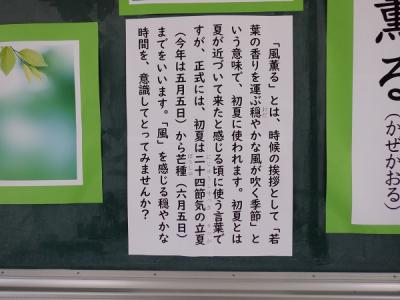 薫る(かぜかおる)
「風薫る」とは、時候の挨拶として「若
葉の香りを運ぶ穏やかな風が吹く季節」と
いう意味で、初夏に使われます。初夏とは
夏が近づいて来たと感じる頃に使う言葉で
すが、正式には、初夏は二十四節気の立夏
(今年は五月五日)から芒種(六月五日)
までをいいます。「風」を感じる穏やかな
時間を、意識してとってみませんか?